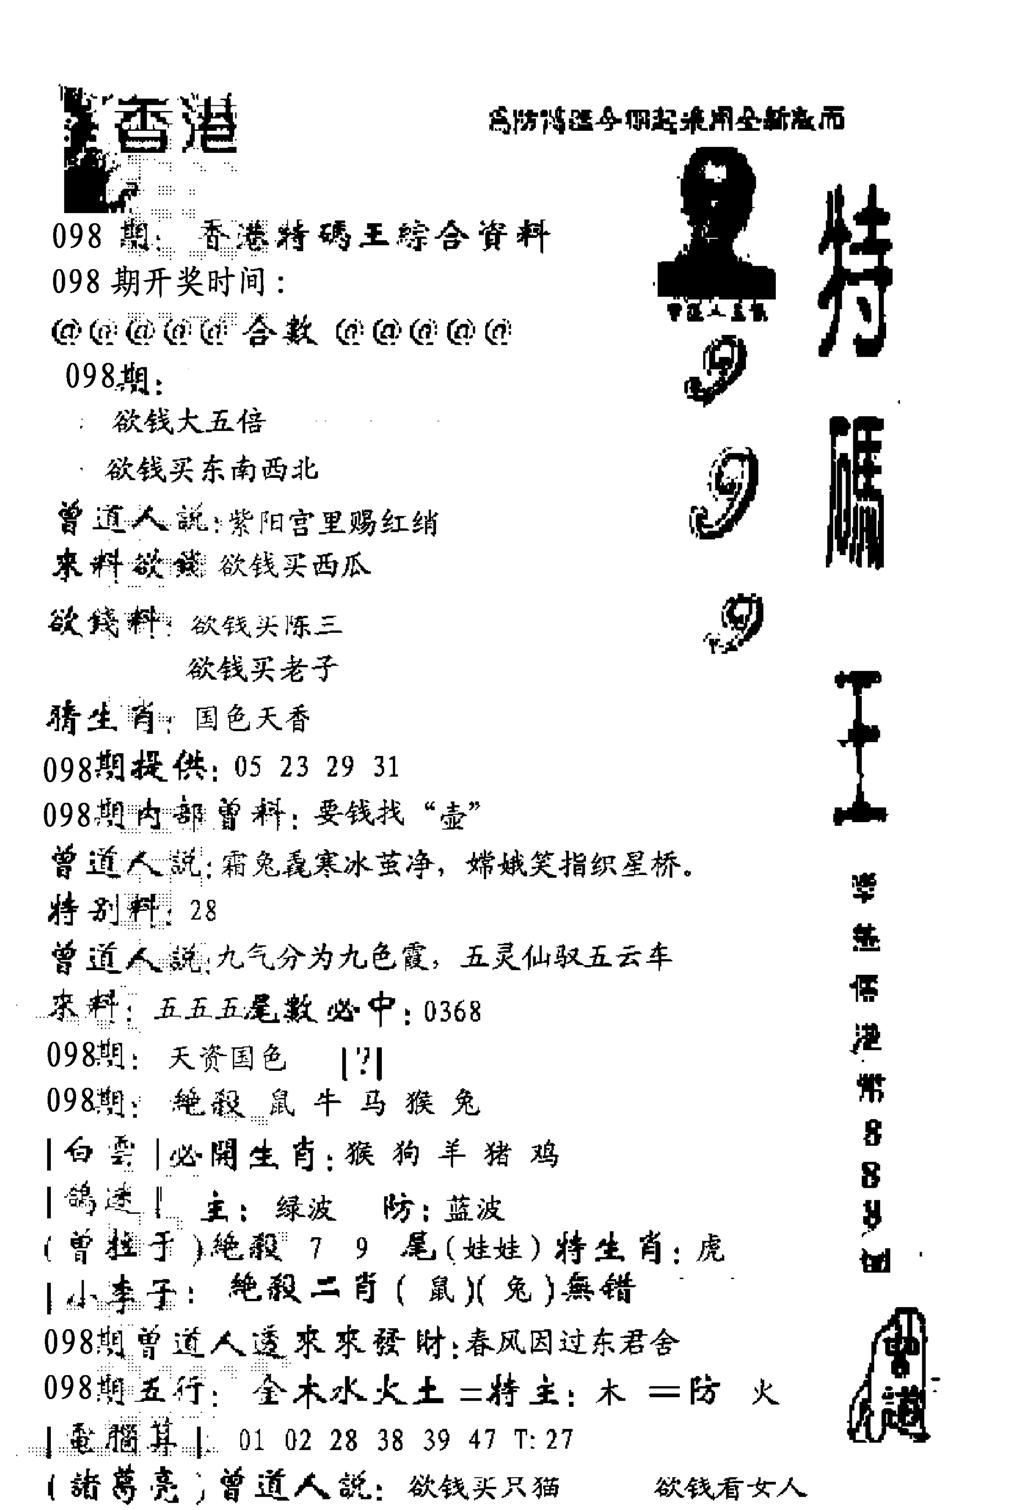 香港
098期：香港特碼王綜合資料
098期开奖时间：
@@@@@合數@@@@@
098期：
欲钱大五倍
欲钱买东南西北
曾道人説：紫阳宫里赐红绡
來料欲錢 欲钱买西瓜
欲錢料：欲钱买陈三
欲钱买老子
猜生肖：国色天香
098期提供：05 23 29 31
098期内部曾料：要钱找“壶”
曾道人説：霜兔毳寒冰茧净，嫦娥笑指织星桥。
特别料：28
曾道人説：九气分为九色霞，五灵仙驭五云车
來料：五五五尾數必中：0368
098期：天资国色 |?|
098期：絶殺 鼠 牛 马 猴 兔
|白雲|必開生肖：猴 狗 羊 猪 鸡
|鴿迷| 主：绿波 防：蓝波
(曾拉于)絶殺 7 9 尾(娃娃)特生肖：虎
|小李子：絶殺二肖(鼠)(兔)無错
098期曾道人透來來發財：春风因过东君舍
098期五行：金木水火土=特主：木=防 火
|電腦算| 01 02 28 38 39 47 T:27
(諸葛亮)曾道人説：欲钱买只猫 欲钱看女人
999
特碼王